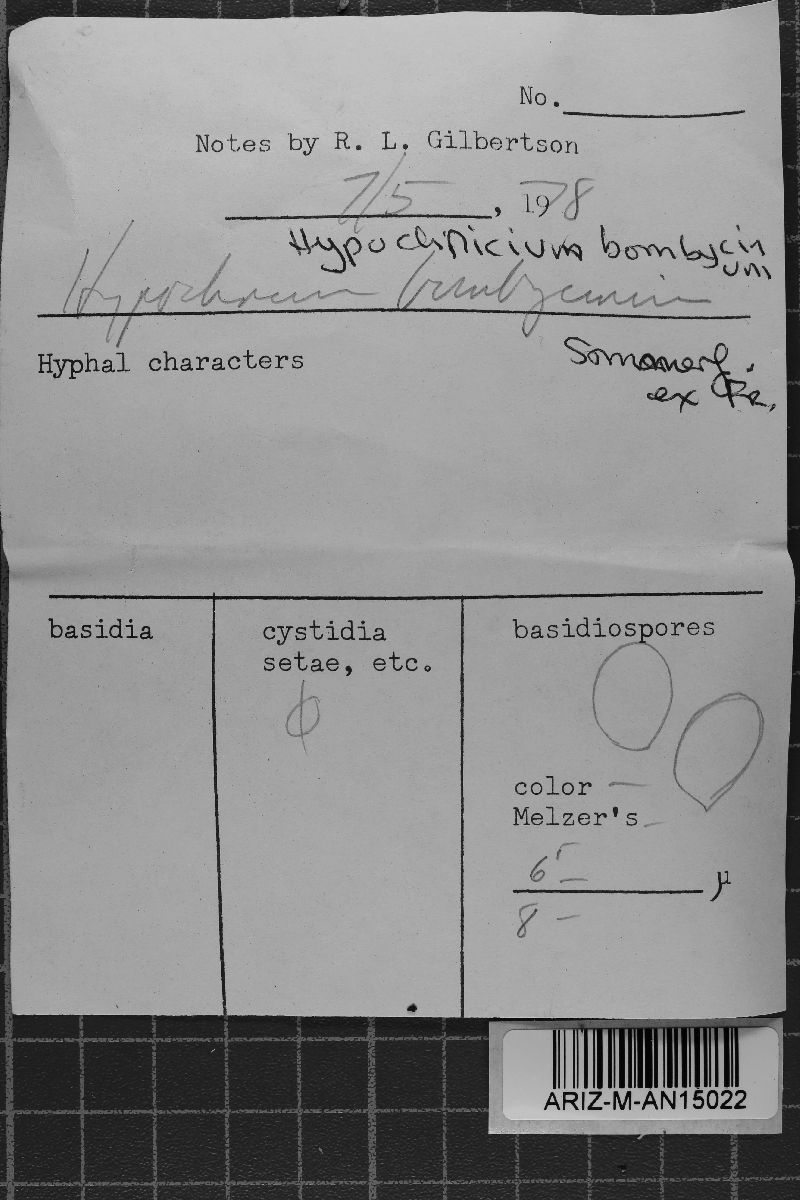 No.
Notes by R. L. Gilbertson
7/5, 1978
Hypochnicium bombycin
um
Hypochnicium bombycinum
Hyphal characters
Sommerf.
ex Fr.
basidia
cystidia
setae, etc.
basidiospores
ϕ
color —
Melzer's —
6 —
μ
8 —
ARIZ-M-AN15022